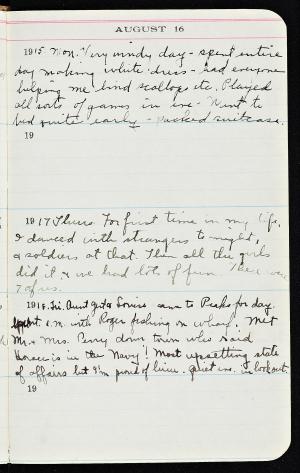 AUGUST 16
1915 Mon. Very windy day - spent entire
day making white dress - had everyone
helping me bind scallops etc. Played
all sorts of games in eve - Went to
bed quite early - packed suitcase.
19
1917 Thurs. For first time in my life,
I danced with strangers tonight,
& soldiers at that. Then all the girls
did it & we had lots of fun. There were
7 of us.
1918. Fri. Aunt Gert & Louise came to Peaks for day.
Spent a.m. with Roger fishing on wharf. Met
Mr. & Mrs. Perry down town who said
Horace is in the Navy! Most upsetting state
of affairs but I'm proud of him. Quiet eve. in lookout.
19